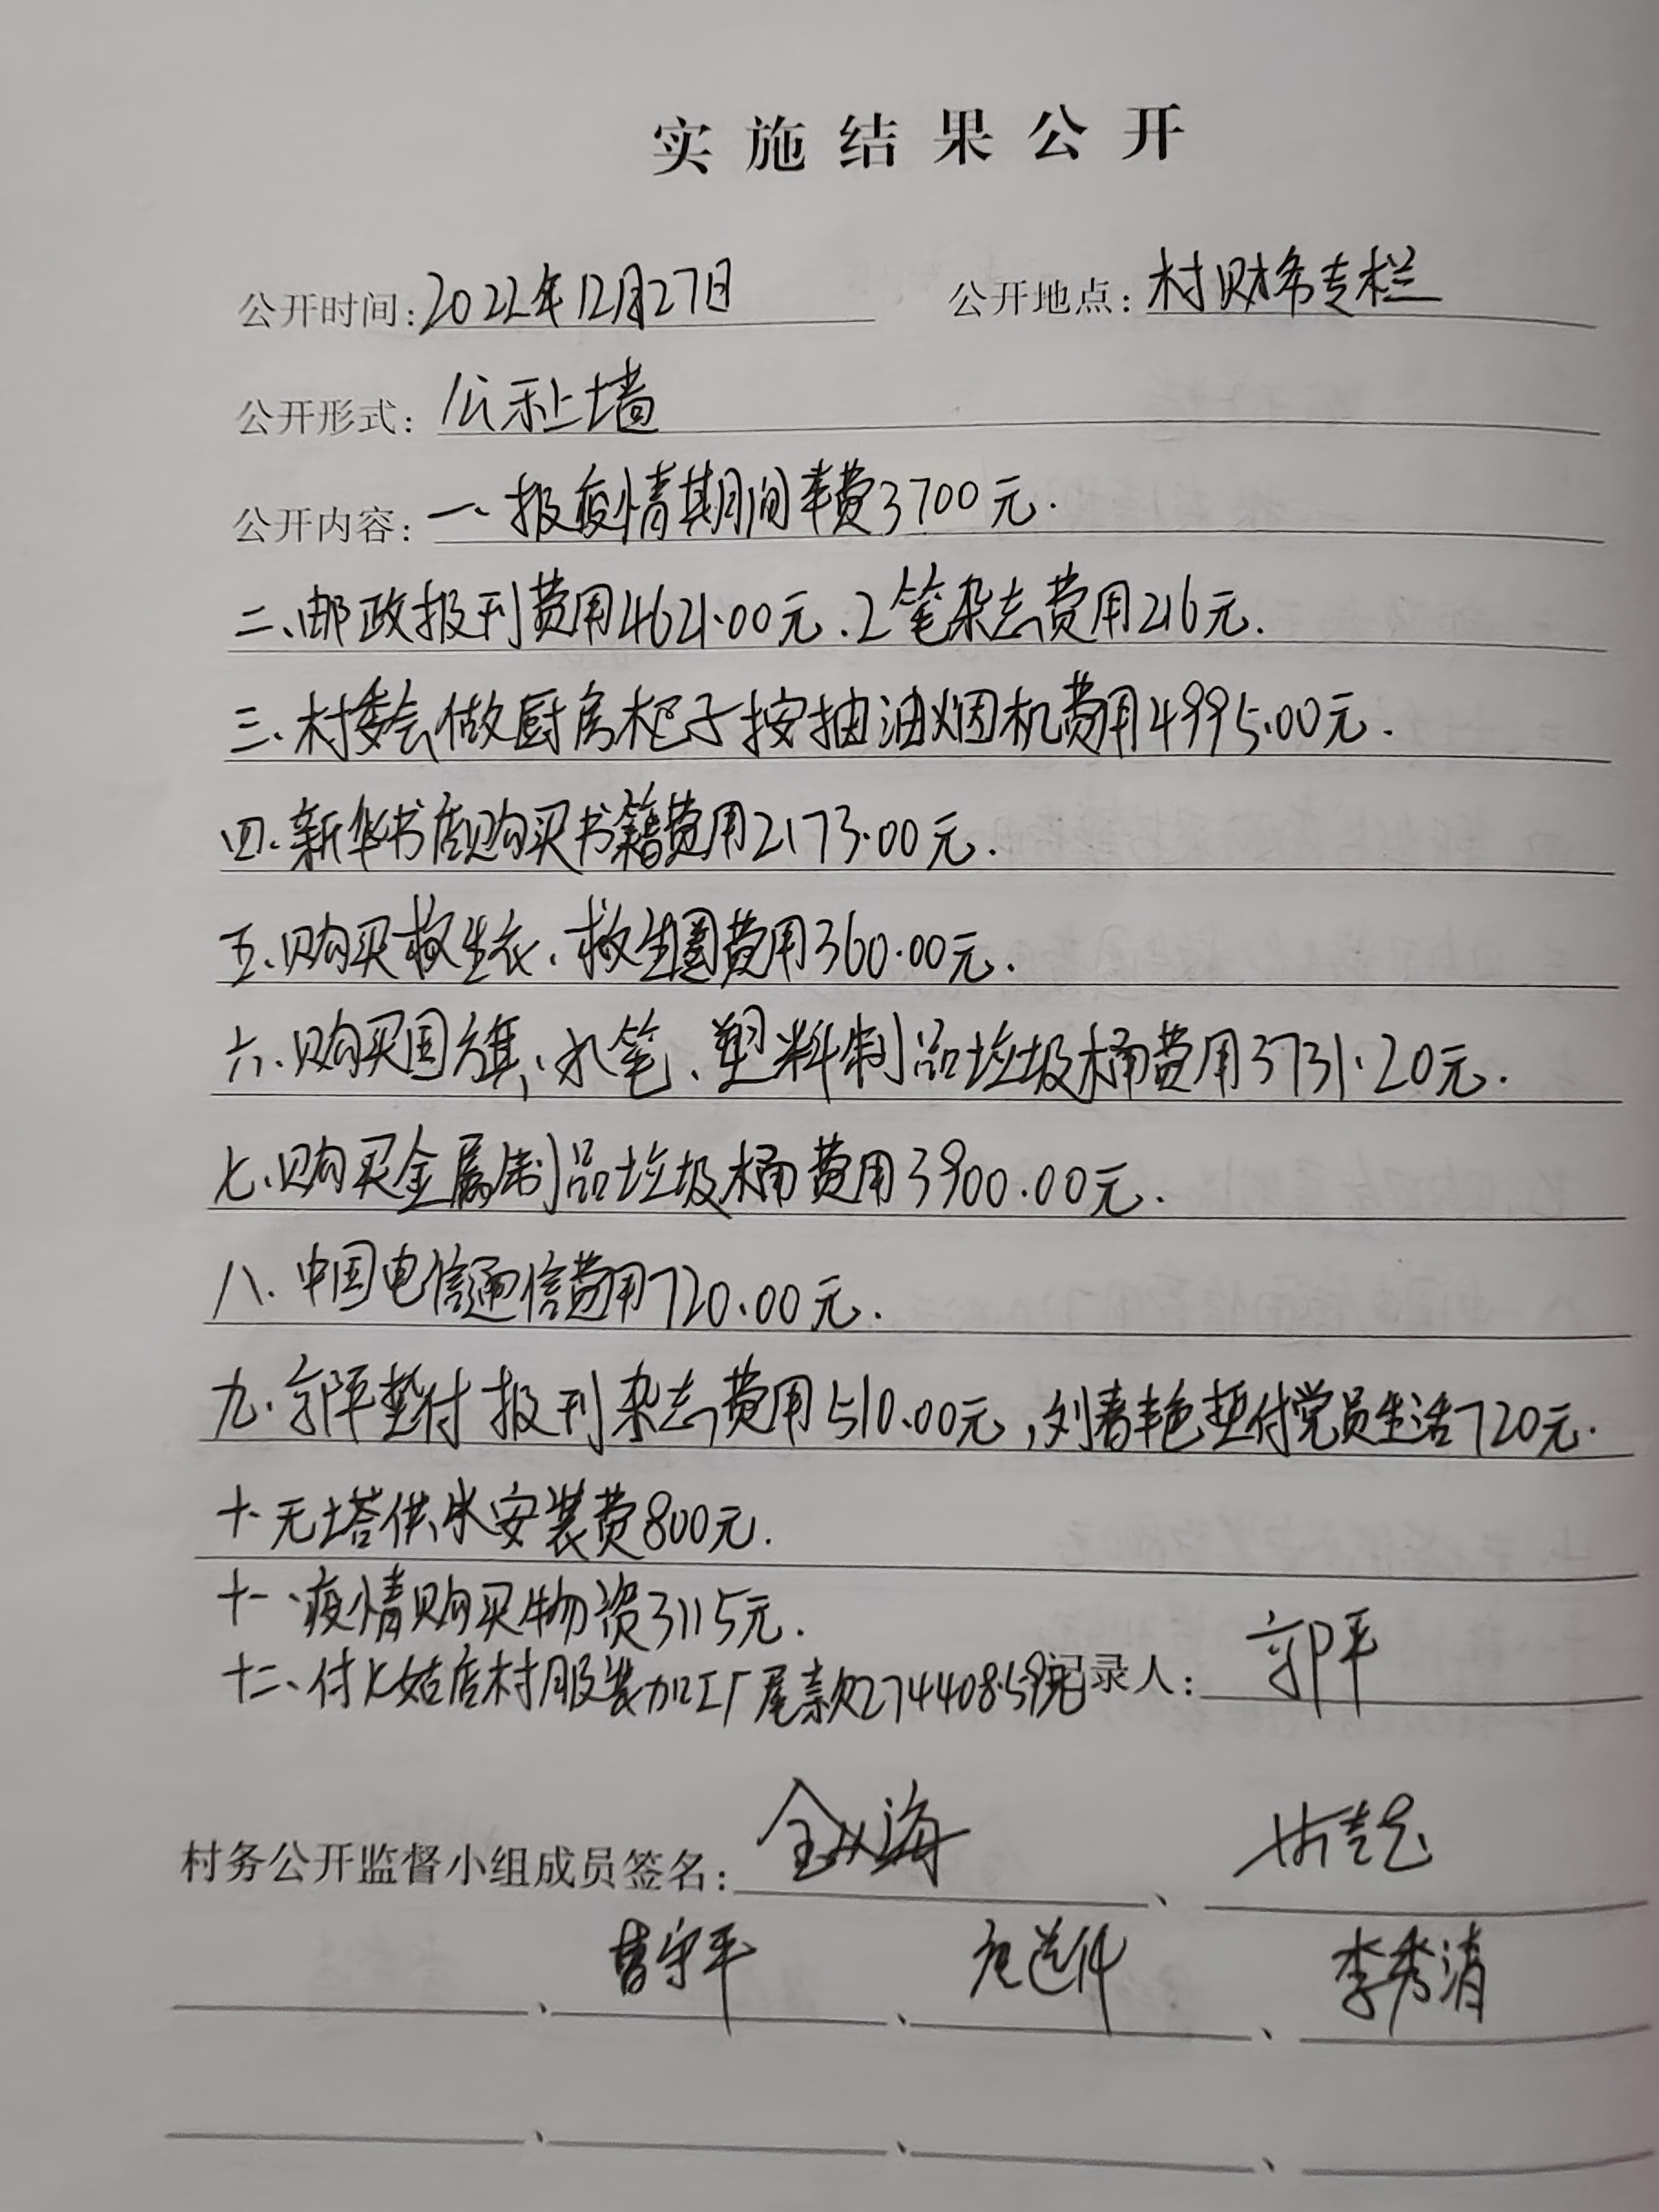 实施结果公开
公开时间：2022年12月27日 公开地点：村财务专栏
公开形式：公示上墙
公开内容：一、报疫情期间车费3700元.
二、邮政报刊费用4621.00元.2笔杂志费用216元.
三、村委会做厨房柜子按抽油烟机费用4995.00元.
四、新华书店购买书籍费用2173.00元.
五、购买救生衣、救生圈费用360.00元.
六、购买国旗、水笔、塑料制品垃圾桶费用3731.20元.
七、购买金属制品垃圾桶费用3900.00元.
八、中国电信通信费用720.00元.
九、郭平垫付报刊杂志费用510.00元,刘春艳垫付党员生活720元.
十、无塔供水安装费800元.
十一、疫情购买物资3115元.
十二、付上姑店村服装加工厂尾款274408.59元 记录人：郭平
村务公开监督小组成员签名：海、
、曹守平、、李秀清
、、、